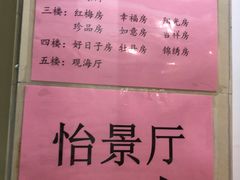 三楼：红梅房 幸福房 阳光房
珍品房 如意房 吉祥房
四楼：好日子房 牡丹房 锦绣房
五楼：观海厅
怡景厅